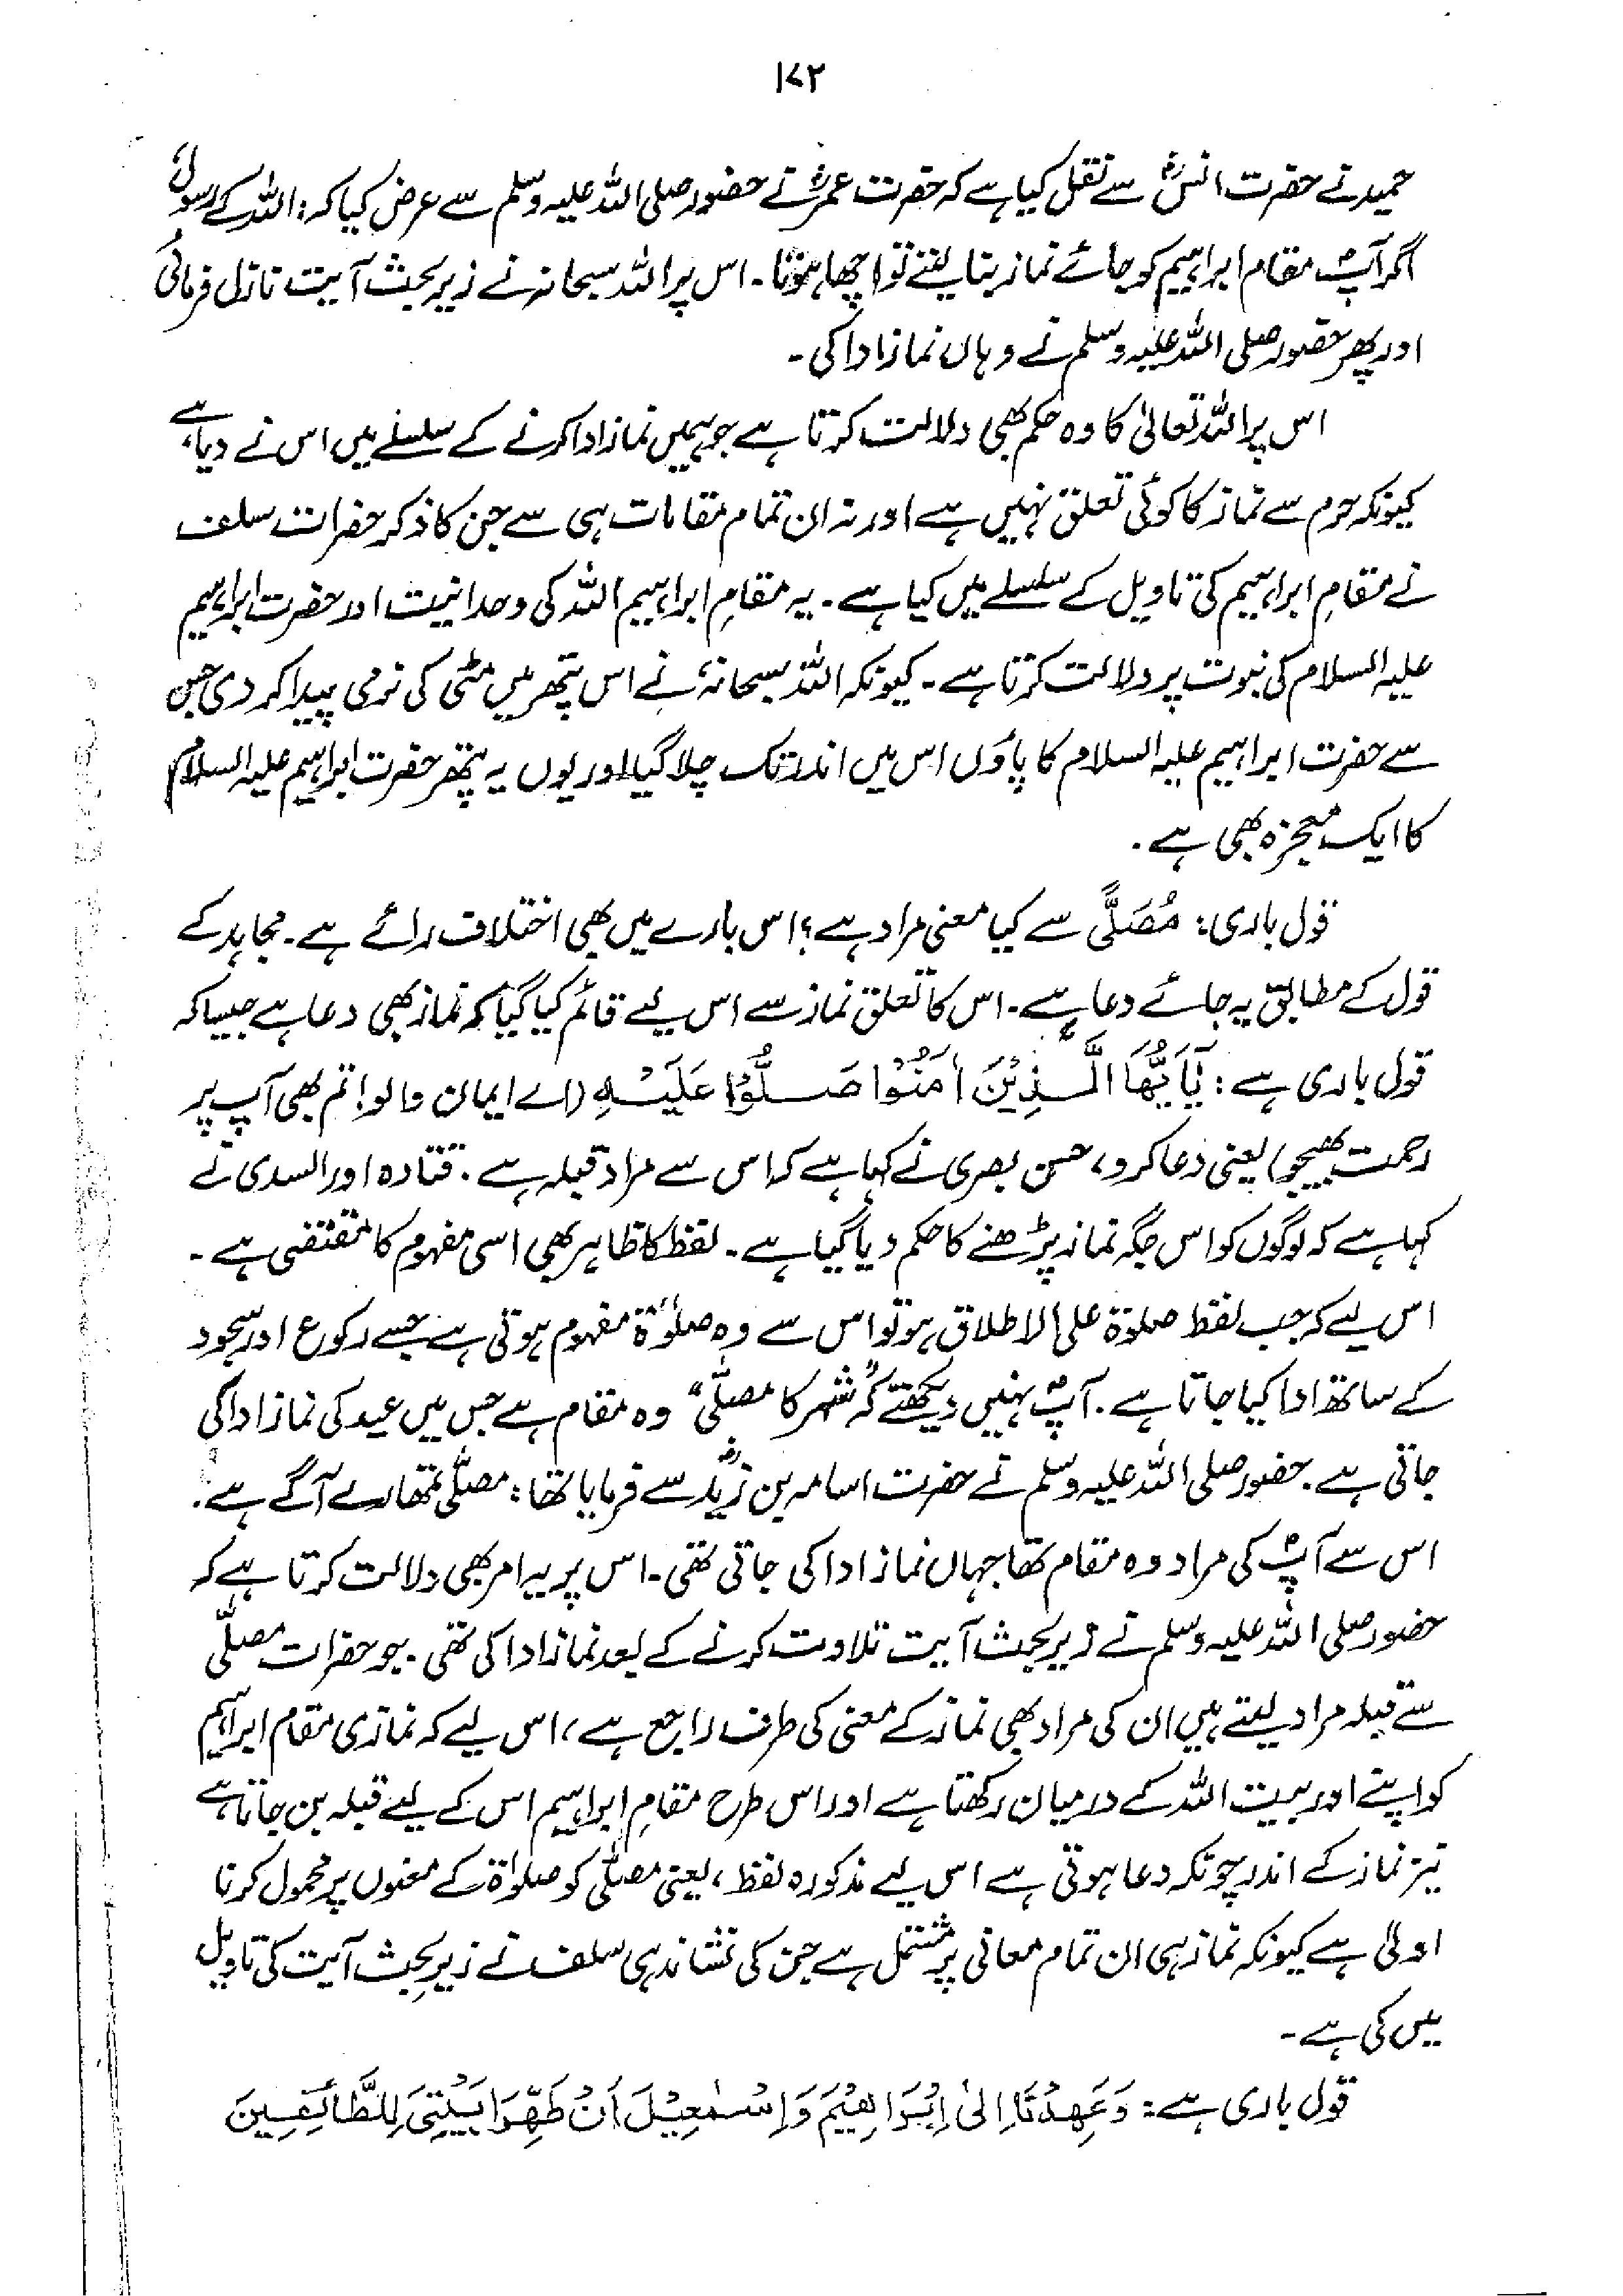 ۱۷۲
حمید نے حضرت انسؓ سے نقل کیا ہے کہ حضرت عمرؓ نے حضور صلی اللہ علیہ وسلم سے عرض کیا کہ: اللہ کے رسولؐ،
اگر آپؐ مقام ابراہیم کو جائے نماز بنا لیتے تو اچھا ہوتا۔ اس پر اللہ سبحانہ نے زیر بحث آیت نازل فرمائی
اور پھر حضور صلی اللہ علیہ وسلم نے وہاں نماز ادا کی۔
اس پر اللہ تعالیٰ کا وہ حکم بھی دلالت کرتا ہے جو ہمیں نماز ادا کرنے کے سلسلے میں اس نے دیا ہے،
کیونکہ حرم سے نماز کا کوئی تعلق نہیں ہے اور نہ ان تمام مقامات ہی سے جن کا ذکر حضرات سلف
نے مقامِ ابراہیم کی تاویل کے سلسلے میں کیا ہے۔ یہ مقامِ ابراہیم اللہ کی وحدانیت اور حضرت ابراہیم
علیہ السلام کی نبوت پر دلالت کرتا ہے۔ کیونکہ اللہ سبحانہٗ نے اس پتھر میں مٹی کی نرمی پیدا کر دی جس
سے حضرت ابراہیم علیہ السلام کا پاؤں اس میں اندر تک چلا گیا اور یوں یہ پتھر حضرت ابراہیم علیہ السلام
کا ایک معجزہ بھی ہے۔
قول باری: مُصَلًّی سے کیا معنی مراد ہے؟ اس بارے میں بھی اختلاف رائے ہے۔ مجاہد کے
قول کے مطابق یہ جائے دعا ہے۔ اس کا تعلق نماز سے اس لیے قائم کیا گیا کہ نماز بھی دعا ہے جیسا کہ
قول باری ہے: یٰٓاَیُّھَا الَّذِیْنَ اٰمَنُوْا صَلُّوْا عَلَیْہِ (اے ایمان والو! تم بھی آپ پر
رحمت بھیجو) یعنی دعا کرو، حسن بصری نے کہا ہے کہ اس سے مراد قبلہ ہے۔ قتادہ اور السدی نے
کہا ہے کہ لوگوں کو اس جگہ نماز پڑھنے کا حکم دیا گیا ہے۔ لفظ کا ظاہر بھی اسی مفہوم کا مقتضی ہے۔
اس لیے کہ جب لفظ صلوٰۃ علی الاطلاق ہو تو اس سے وہ صلوٰۃ مفہوم ہوتی ہے جسے رکوع اور سجود
کے ساتھ ادا کیا جاتا ہے۔ آپؐ نہیں دیکھتے کہ "شہر کا مصلّٰی" وہ مقام ہے جس میں عید کی نماز ادا کی
جاتی ہے۔ حضور صلی اللہ علیہ وسلم نے حضرت اسامہ بن زیدؓ سے فرمایا تھا: مصلّٰی تمھارے آگے ہے۔
اس سے آپؐ کی مراد وہ مقام تھا جہاں نماز ادا کی جاتی تھی۔ اس پر یہ امر بھی دلالت کرتا ہے کہ
حضور صلی اللہ علیہ وسلم نے زیر بحث آیت تلاوت کرنے کے بعد نماز ادا کی تھی۔ جو حضرات مصلّٰی
سے قبلہ مراد لیتے ہیں ان کی مراد بھی نماز کے معنی کی طرف راجع ہے، اس لیے کہ نمازی مقام ابراہیم
کو اپنے اور بیت اللہ کے درمیان رکھتا ہے اور اس طرح مقامِ ابراہیم اس کے لیے قبلہ بن جاتا ہے
نیز نماز کے اندر چونکہ دعا ہوتی ہے اس لیے مذکورہ لفظ، یعنی مصلّٰی کو صلوٰۃ کے معنوں پر محمول کرنا
اولیٰ ہے کیونکہ نماز ہی ان تمام معانی پر مشتمل ہے جن کی نشاندہی سلف نے زیرِ بحث آیت کی تاویل
میں کی ہے۔
قول باری ہے: وَعَھِدْنَا اِلیٰ اِبْرَاھِیْمَ وَاِسْمٰعِیْلَ اَنْ طَھِّرَا بَیْتِیَ لِلطَّائِفِیْنَ